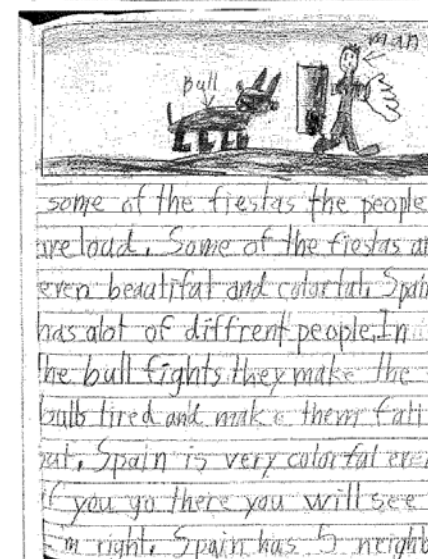 man
Bull
some of the fiestas the people
are loud. Some of the fiestas
even beautifal and colorful. Spain
has alot of diffrent people. In
the bull fights they make the
bulls tired and make them fall
out. Spain is very colorful even
if you go there you will see
I'm right. Spain has 5